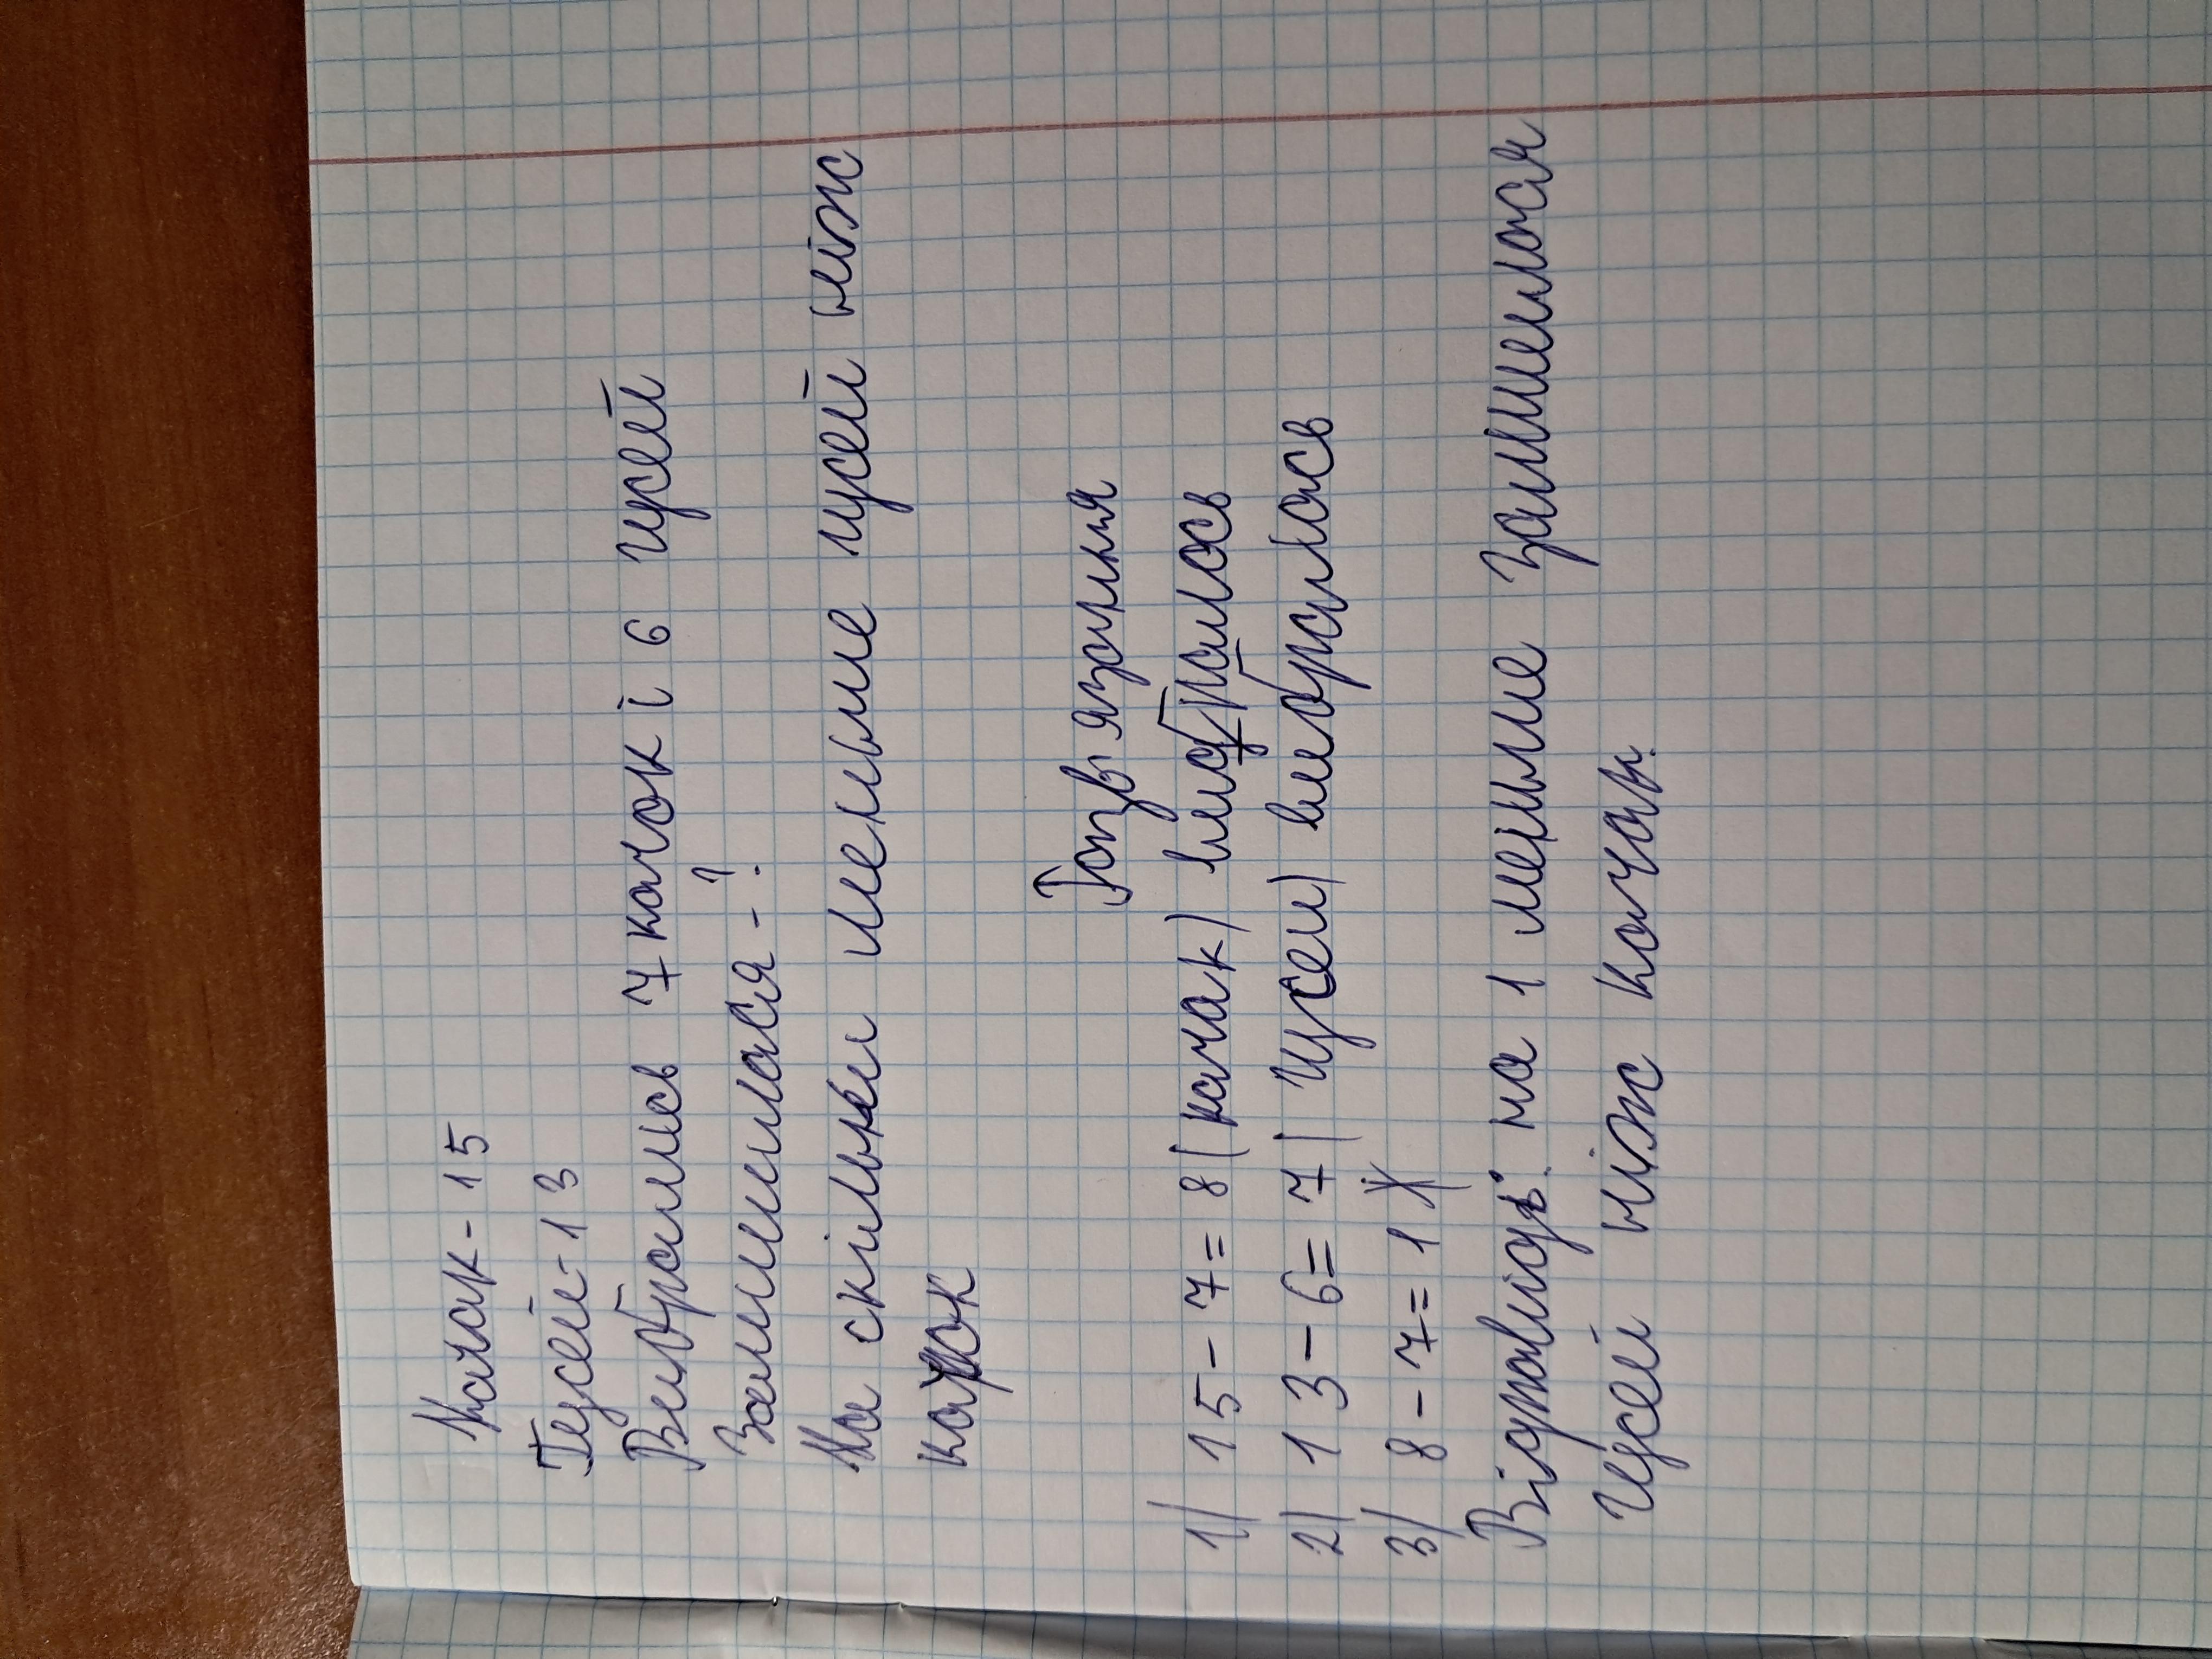 Качок - 15
Гусей - 13
Вибрались 7 качок і 6 гусей
Залишилася - ?
На скільки меньше гусей ніж
качок
Розвязання
1) 15 - 7 = 8 (качак) вибралось
2) 13 - 6 = 7 (гусей) вибралась
3) 8 - 7 = 1
Відповідь: на 1 меньше залишилося
гусей ніж качак.